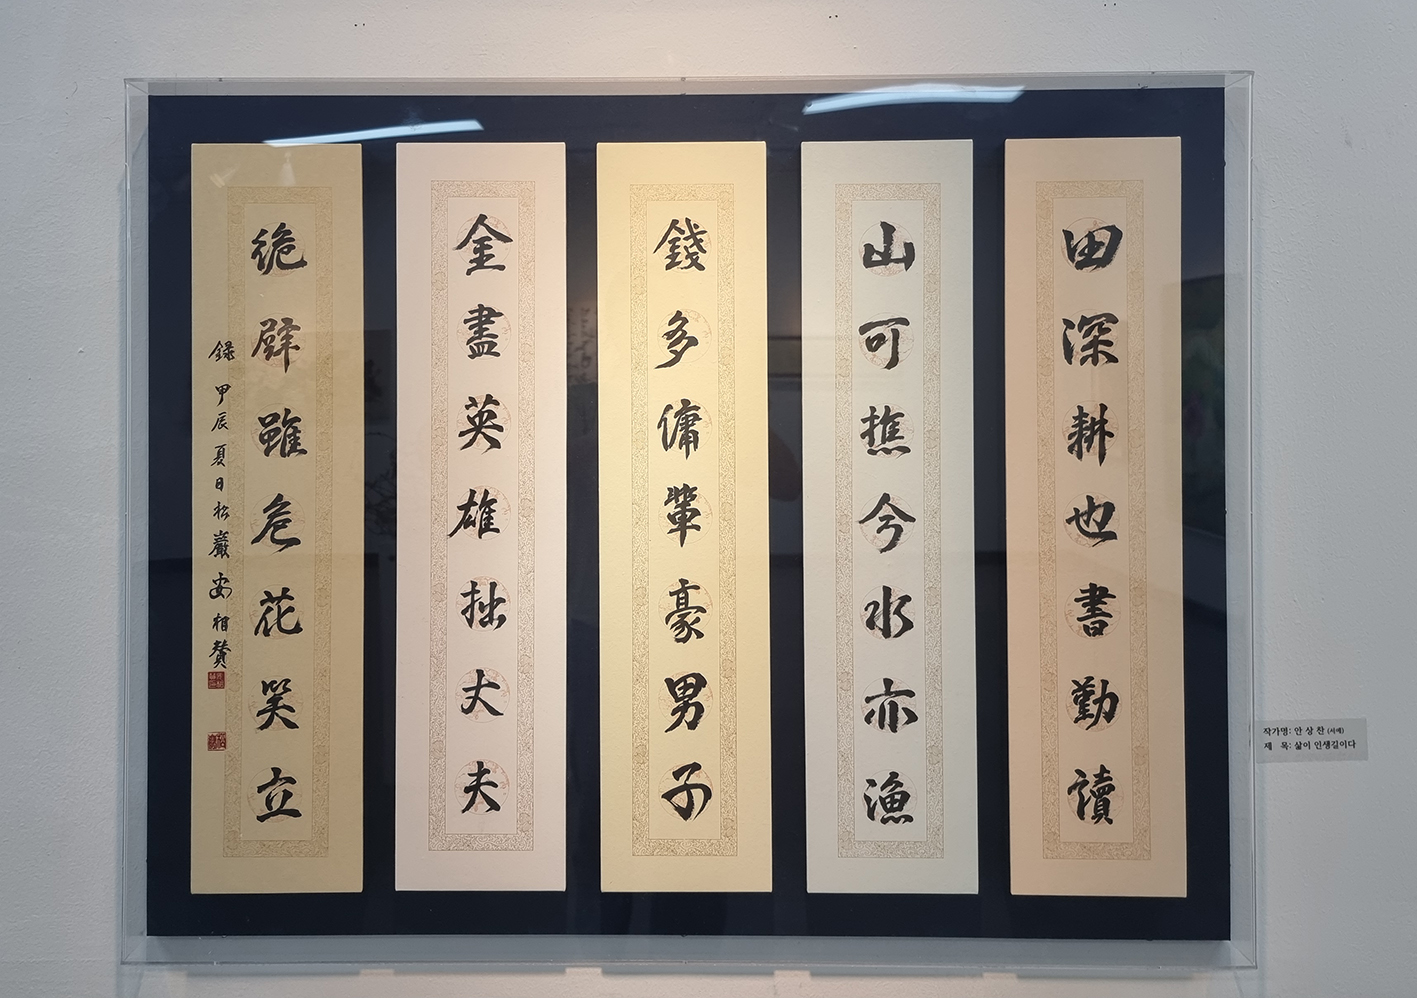 田深耕也書勤讀
山可樵兮水亦漁
錢多傭輩豪男子
金盡英雄拙丈夫
絶壁雖危花笑立
錄 甲辰夏日松巖安相贊
작가명: 안 상 찬 (서예)
제 목: 삶이 인생길이다